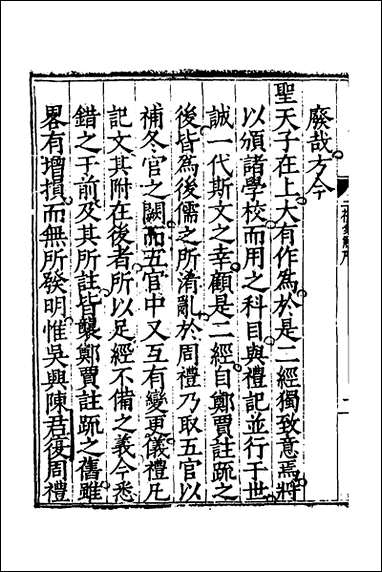 廢哉方今
聖天子在上大有作為於是二經獨致意焉將
以頒諸學校而用之科目與禮記並行于世
誠一代斯文之幸顧是二經自鄭賈註疏之
後皆為後儒之所淆亂於周禮乃取五官以
補冬官之闕而五官中又互有變更儀禮凡
記文其附在後者所以足經不備之義今悉
錯之于前及其所註皆襲鄭賈註疏之舊雖
畧有增損而無所發明惟吳興陳君復周禮